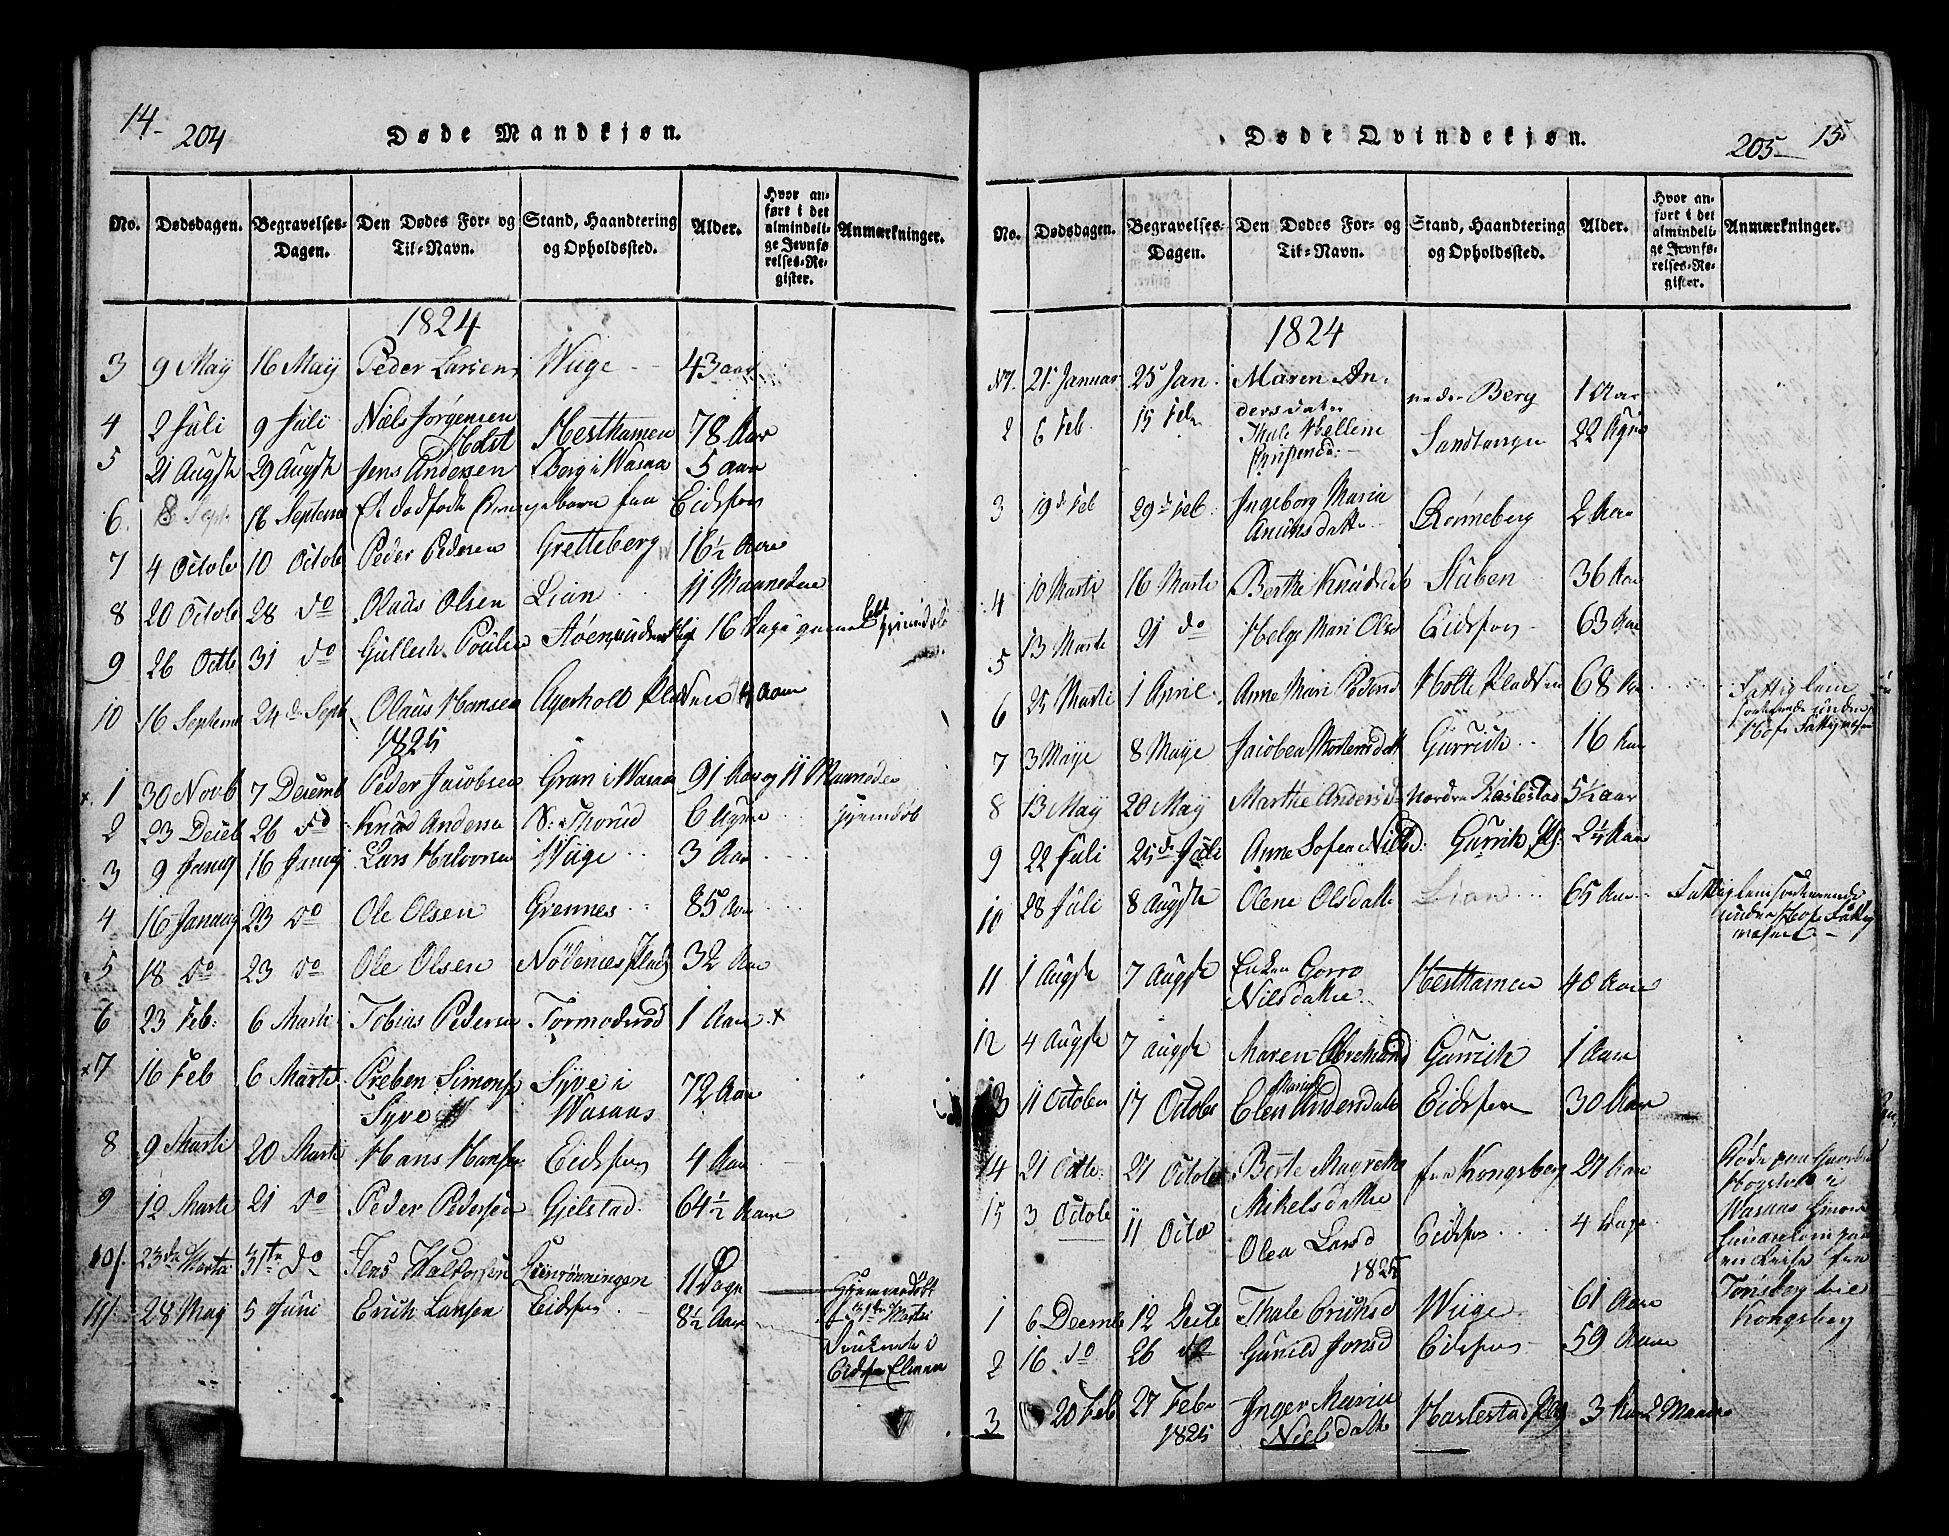 14-
204
Døde Mandkjøn.
No. Dødsdagen. Begravelses-Dagen. Den Dødes For- og Til-Navn. Stand, Haandtering og Opholdssted. Alder. Hvor anført i det almindelige Jevnførelses-Register. Anmærkninger.
1824
3 9 May 16 May Peder Larsen Wiige 43 aar
4 2 Juli 9 Juli Niels Jørgensen Holst Hesthamen 78 Aar
5 21 Augste 29 Augste Jens Andersen Berg i Wasaas 5 aar
6. 8 Sept. 16 Septem Et dødfødt Drengebarn fra Eidsfos
7 4 Octobr 10 Octobr Peder Pedersen Gretteberg 16½ Aar
8 20 Octobr 28 do Olaus Olsen Lian 11 Maaneder
9 26 Octbr 31 do Gullech Poulsen 16 Dage
10 16 Septem 24de Sept Olaus Hansen Agerholt Pladsen Aar
1825
1 30 Novb 7 Decemb Peder Jacobsen Gran i Wasaas 91 Aar og 11 Maaneder
2 23 Deceb 26 do Knud Anders N: Thorud 6 Uger hjemdøb
3 9 Januarj 16 Januarj Lars Halvorsen Wiige 3 Aar
4 16 Januarj 23 do Ole Olsen Grennes 85 Aar
5 18 do 23 do Ole Olsen Nødenes Plads 32 Aar
6 23 Feb: 6 Marti Tobias Peders Tormodsrød 1 Aar x
x7 16 Feb 6 Marti Preben Simons Syve Syve i Wasaas 72 Aar
8 9 Marti 20 Marti Hans Hansen Eidsfos 4 Aar
9 12 Marti 21 do Peder Pedersen Gjelstad 64½ Aar
10/. 23de Martii 31te do Jens Halvorsen 11 Dage Hjemmedøbt
11/. 28 May 5 Juni Erich Larsen Eidsfos 8½ Aar
Druknede i
Eidsfos Elven
Døde Qvindekjøn.
205- 15
No. Dødsdagen. Begravelses-Dagen. Den Dødes For- og Til-Navn. Stand, Haandtering og Opholdssted. Alder. Hvor anført i det almindelige Jevnførelses-Register. Anmærkninger.
1824
N1. 21 Januar 25 Jan. Maren Andersdater nedre Berg 1 Aar
2 6 Feb 15 Feb Thale Hellene Sandtangen 22 Uger
3 19de Feb 29de Feb. Ingeborg Maria Rønneberg 2 Aar
4 10 Marti 16 Marti Berthe Knudsdt Stuben 36 Aar
5 13 Marti 21 do Helge Mari Olsd Eidsfos 63 Aar
6 25 Marti 1 April Anne Mari Pedersd Holte Pladsen 68 Aar Fattiglem sorterende under Hofs Fattigvæsen
7 3 Maye 8 Maye Jacobea Mortensdatt Gurrich 16 Aar
8 13 May 20 May Marthe Andersd Nordre Haslestad 5½ aar
9 22 Juli 25de Juli Anne Sofea Nilsd Gurrich Pls. Aar
10 28 Juli 8 Augste Olene Olsdatte Lian 65 Aar Fattiglem sorterende under Hofs Fattigvæsen
11 1 Augste 7 Augste Nilsdatter Hesthamen 40 Aar
12 4 Augste 7 Augste Maren Abrahamsd Gurrich 1 Aar
13 11 October 17 October Elen Marie Andersdatt Eidsfos 30 Aar
14 21 Octbe 27 October Berte Magrethe Mikelsdatter fra Kongsberg 27 Aar Døde paa Gaarden Hogstad i Wasaas paa en Reise fra Tønsberg til Kongsberg
15 3 October 11 Octb Olea Larsd Eidsfos 4 Dage
1825
1 6 Decemb 12 Decbe Thale Erichsd Wiige 61 Aar
2 16 do 26 do Gunild Jonsd Eidsfos 59 Aar
3 20 Feb 27 Febr 1825 Inger Maria Nielsdatt Haslestad Plds 3 Aar 2 Maane